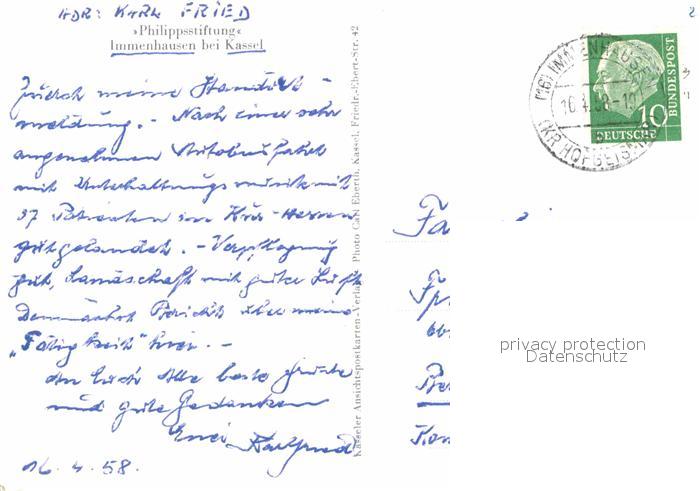 ADR: KARL FRIED
»Philippsstiftung«
Immenhausen bei Kassel
Zuerst meine Standort-
meldung. - Nach einer sehr
angenehmen Autobusfahrt
mit Unterhaltungsmusik mit
37 Patienten im Kur-
gut gelandet. - Verpflegung
gut, Landschaft mit guter Luft
Demnächst Bericht über meine
„Tätigkeit" hier. -
An Euch Alle beste Grüße
und gute Gedanken
Euer
16.4.58.
Kasseler Ansichtspostkarten-Verlag Photo Carl Eberth, Kassel, Friedr.-Ebert-Str. 42
(16) IMMENHAUSEN
(KR HOFGEISMAR)
10
DEUTSCHE
BUNDESPOST
privacy protection
Datenschutz